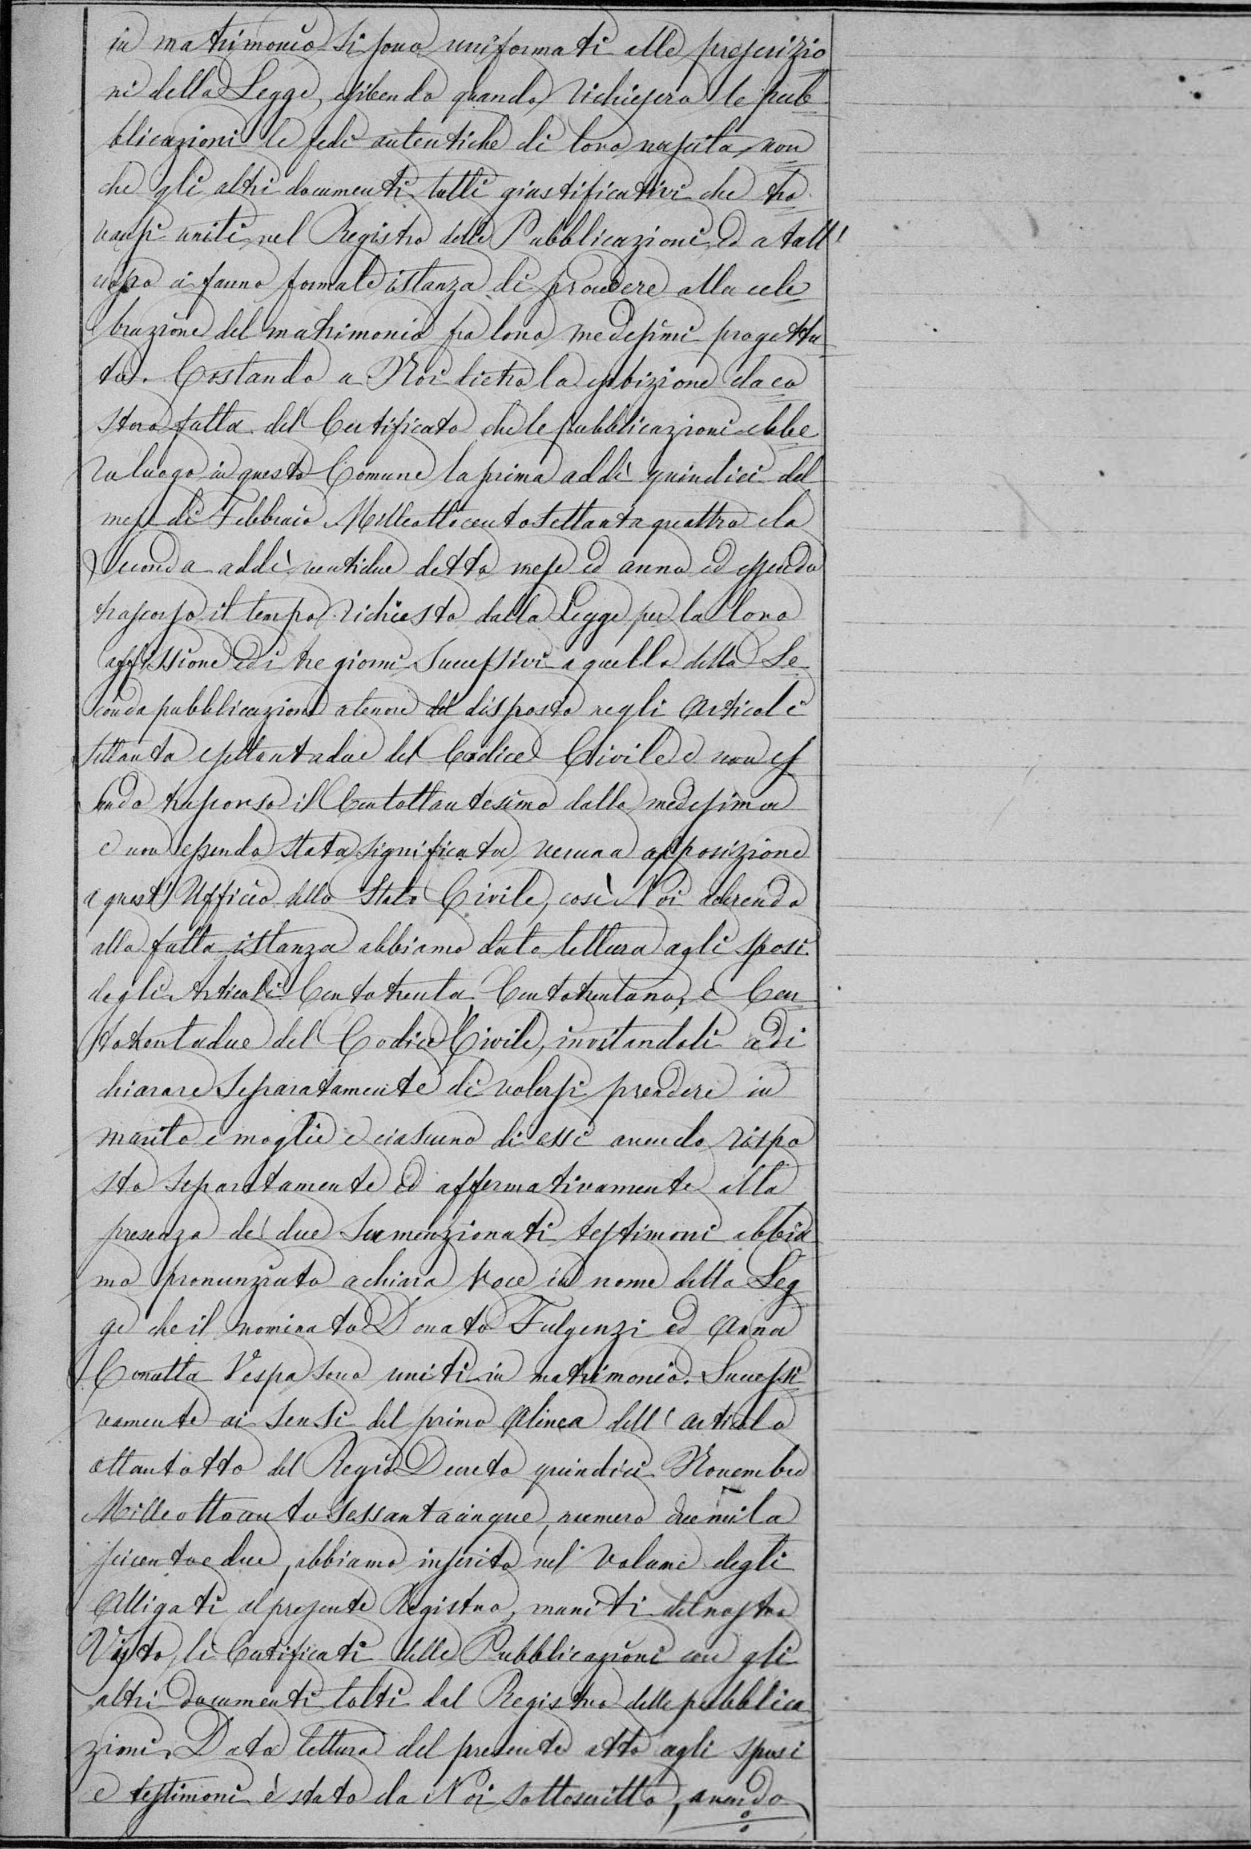 in matrimonio si sono uniformati alle prescrizio
ni della Legge, esibendo quando richiesero le pub
blicazioni le fedi autentiche di loro nascita, non
che gli altri documenti tutti giustificativi che tro
vansi uniti nel Registro delle Pubblicazioni, ed a tall'
uopo ci fanno formale istanza di procedere alla cele
brazione del matrimonio fra loro medesimi progetta
to. Costando a Noi dietro la esibizione da co
storo fatta del Certificato che le pubblicazioni ebbe
ro luogo in questo Comune la prima addì quindici del
mese di Febbraio Milleottocentosettantaquattro e la
seconda addì ventidue detto mese ed anno ed essendo
trascorso il tempo richiesto dalla Legge per la loro
affissione ed i tre giorni successivi a quello della Se
conda pubblicazione a tenore del disposto negli Articoli
settanta e settantadue del Codice Civile e non es
sendo trascorso il Centottantesimo dalla medesima
e non essendo stata significata veruna opposizione
a quest'Ufficio dello Stato Civile, così Noi aderendo
alla fatta istanza abbiamo dato lettura agli sposi
degli Articoli Centotrenta, Centotrentuno, e Cen
totrentadue del Codice Civile, invitandoli a di
chiarare separatamente di volersi prendere in
marito e moglie e ciascuno di essi avendo rispo
sto separatamente ed affermativamente alla
presenza dei due sumenzionati testimoni abbia
mo pronunziato a chiara voce in nome della Leg
ge che il nominato Donato Fulgenzi ed Anna
Conatta Vespa sono uniti in matrimonio. Successi
vamente ai sensi del primo Alinea dell'articolo
ottantotto del Regio Decreto quindici Novembre
Milleottocentosessantacinque, numero duemila
seicentoedue, abbiamo inserito nel volume degli
Alligati al presente Registro, muniti del nostro
Visto, li Certificati delle Pubblicazioni con gli
altri documenti tolti dal Registro delle pubblica
zioni. Data lettura del presente atto agli sposi
e testimoni è stato da Noi sottoscritto, avendo